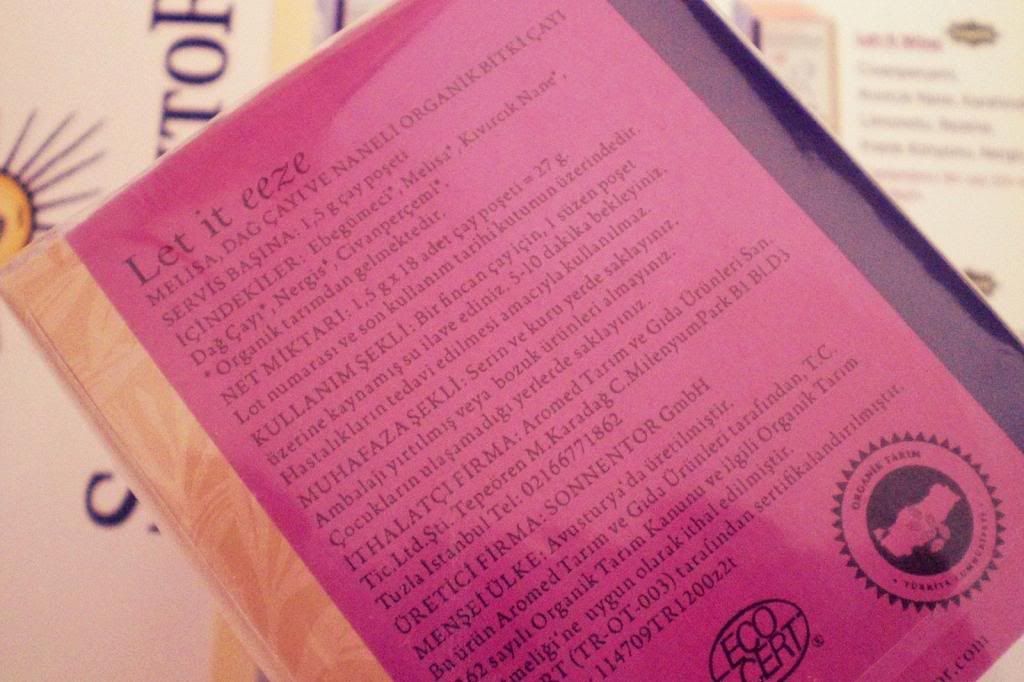 Let it eeze
MELİSA, DAĞ ÇAYI VE NANELİ ORGANİK BİTKİ ÇAYI
SERVİS BAŞINA: 1,5 g çay poşeti
İÇİNDEKİLER: Ebegümeci*, Melisa*, Kıvırcık Nane*,
Dağ Çayı*, Nergis*, Civanperçemi*.
* Organik tarımdan gelmektedir.
NET MİKTARI: 1,5 g x 18 adet çay poşeti = 27 g.
Lot numarası ve son kullanım tarihi kutunun üzerindedir.
KULLANIM ŞEKLİ: Bir fincan çay için, 1 süzen poşet
üzerine kaynamış su ilave ediniz. 5-10 dakika bekleyiniz.
Hastalıkların tedavi edilmesi amacıyla kullanılmaz.
MUHAFAZA ŞEKLİ: Serin ve kuru yerde saklayınız.
Ambalajı yırtılmış veya bozuk ürünleri almayınız.
Çocukların ulaşamadığı yerlerde saklayınız.
İTHALATÇI FİRMA: Aromed Tarım ve Gıda Ürünleri San.
Tic.Ltd.Şti. Tepeören M.Karadağ C.MilenyumPark B1 BlD3
Tuzla İstanbul Tel: 02166771862
ÜRETİCİ FİRMA: SONNENTOR GmbH
MENŞEİ ÜLKE: Avusturya'da üretilmiştir.
Bu ürün Aromed Tarım ve Gıda Ürünleri tarafından, T.C.
262 sayılı Organik Tarım Kanunu ve ilgili Organik Tarım
tmeliği'ne uygun olarak ithal edilmiştir.
RT (TR-OT-003) tarafından sertifikalandırılmıştır.
114709TR1200z2t
ORGANİK TARIM
TÜRKİYE CUMHURİYETİ
ECO
CERT
®
or.com
TOR
S